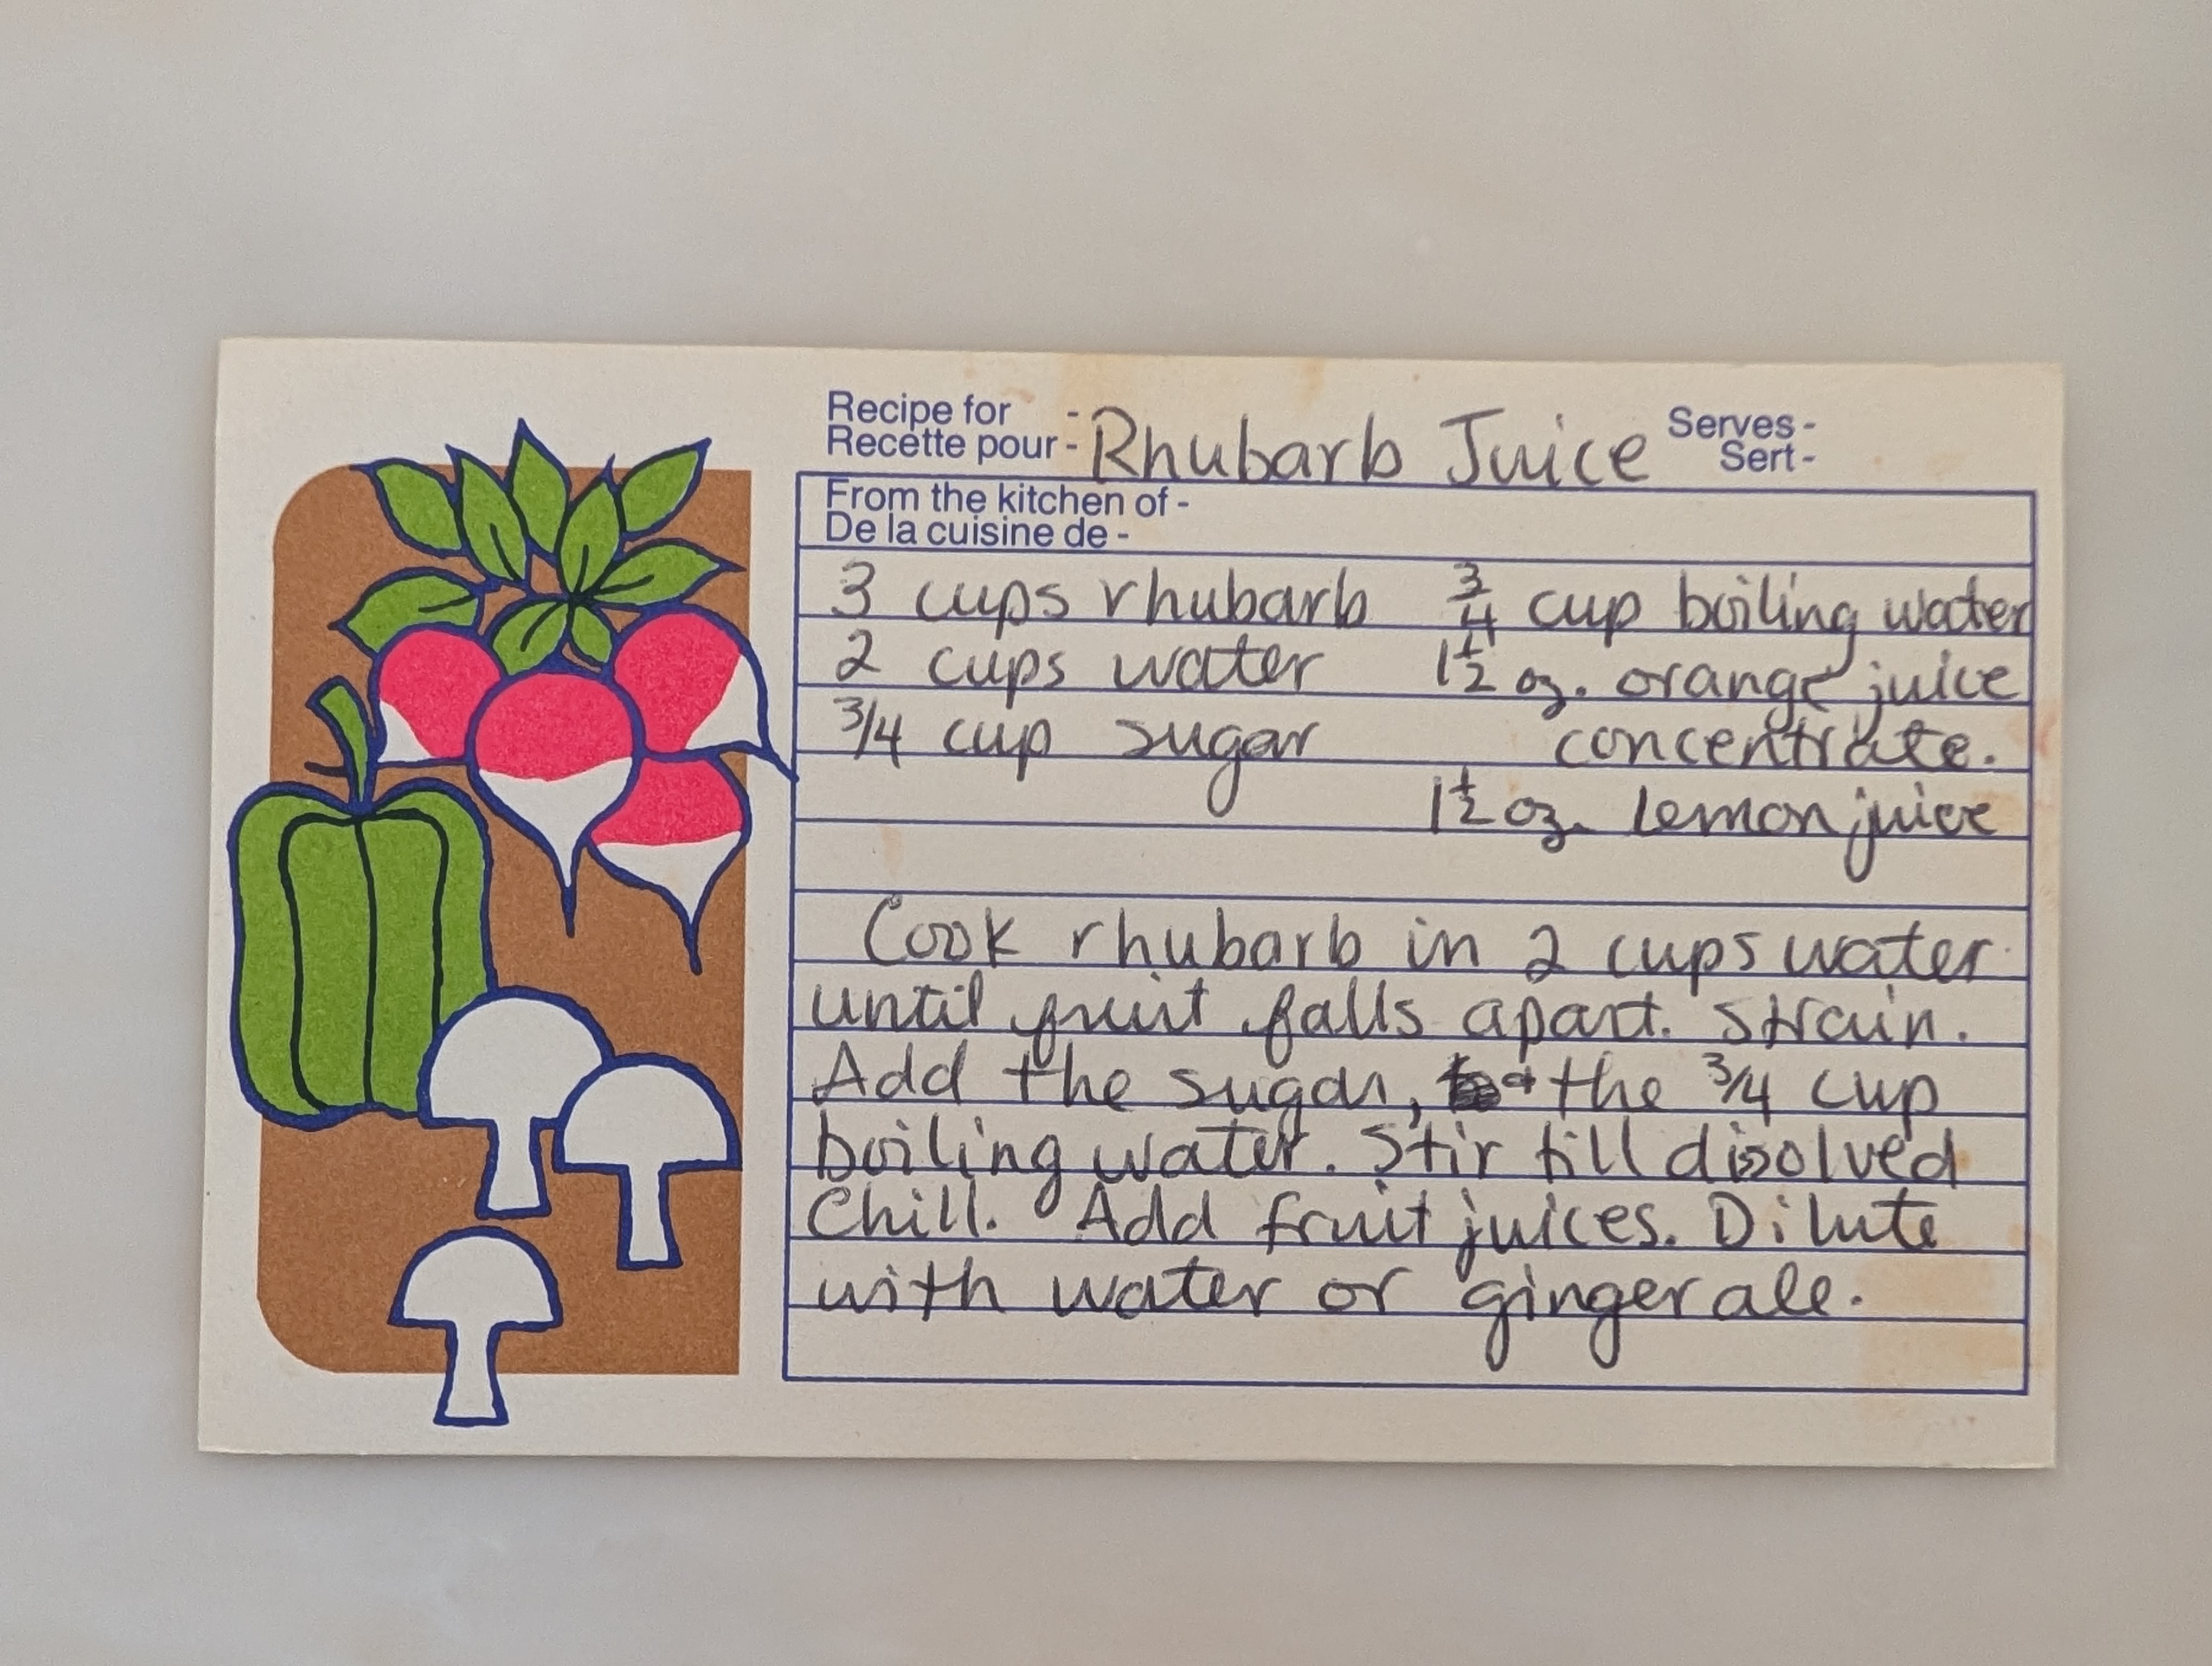 Recipe for -
Recette pour - Rhubarb Juice Serves -
Sert -
From the kitchen of -
De la cuisine de -
3 cups rhubarb 3/4 cup boiling water
2 cups water 1 1/2 oz. orange juice
3/4 cup sugar concentrate.
1 1/2 oz. Lemon juice
Cook rhubarb in 2 cups water
until fruit falls apart. Strain.
Add the sugar, + the 3/4 cup
boiling water. Stir till disolved
Chill. Add fruit juices. Dilute
with water or gingerale.